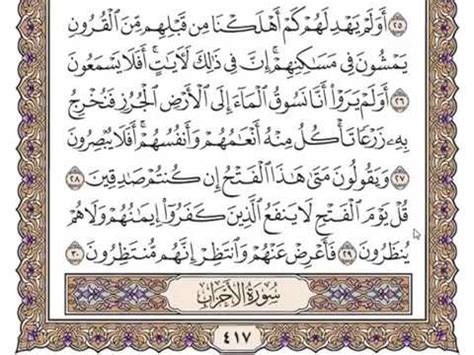 ٢٥ أَوَلَمْ يَهْدِ لَهُمْ كَمْ أَهْلَكْنَا مِن قَبْلِهِم مِّنَ ٱلْقُرُونِ
يَمْشُونَ فِى مَسَٰكِنِهِمْ ۚ إِنَّ فِى ذَٰلِكَ لَـَٔايَٰتٍ ۖ أَفَلَا يَسْمَعُونَ
٢٦ أَوَلَمْ يَرَوْا۟ أَنَّا نَسُوقُ ٱلْمَآءَ إِلَى ٱلْأَرْضِ ٱلْجُرُزِ فَنُخْرِجُ
بِهِۦ زَرْعًا تَأْكُلُ مِنْهُ أَنْعَٰمُهُمْ وَأَنفُسُهُمْ ۖ أَفَلَا يُبْصِرُونَ
٢٧ وَيَقُولُونَ مَتَىٰ هَٰذَا ٱلْفَتْحُ إِن كُنتُمْ صَٰدِقِينَ ٢٨
قُلْ يَوْمَ ٱلْفَتْحِ لَا يَنفَعُ ٱلَّذِينَ كَفَرُوٓا۟ إِيمَٰنُهُمْ وَلَا هُمْ
يُنظَرُونَ ٢٩ فَأَعْرِضْ عَنْهُمْ وَٱنتَظِرْ إِنَّهُم مُّنتَظِرُونَ ٣٠
سُورَةُ الأَحْزَابِ
٤١٧